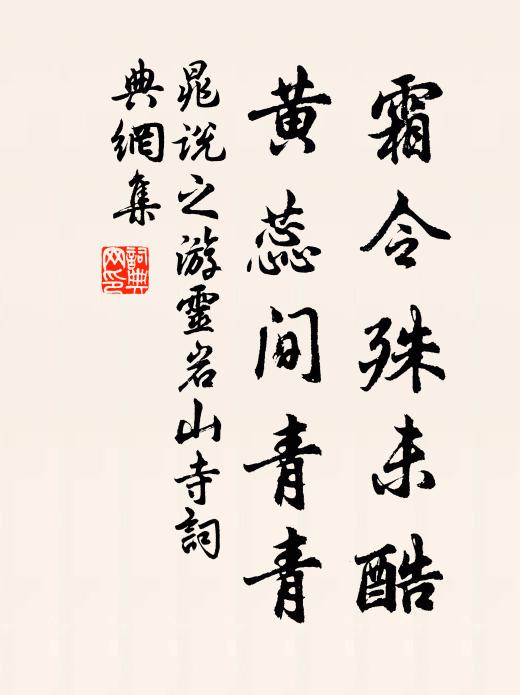 霜令殊未酷
黄蕊间青青
晁说之游靈岩山寺詞
典網集
詞典網印